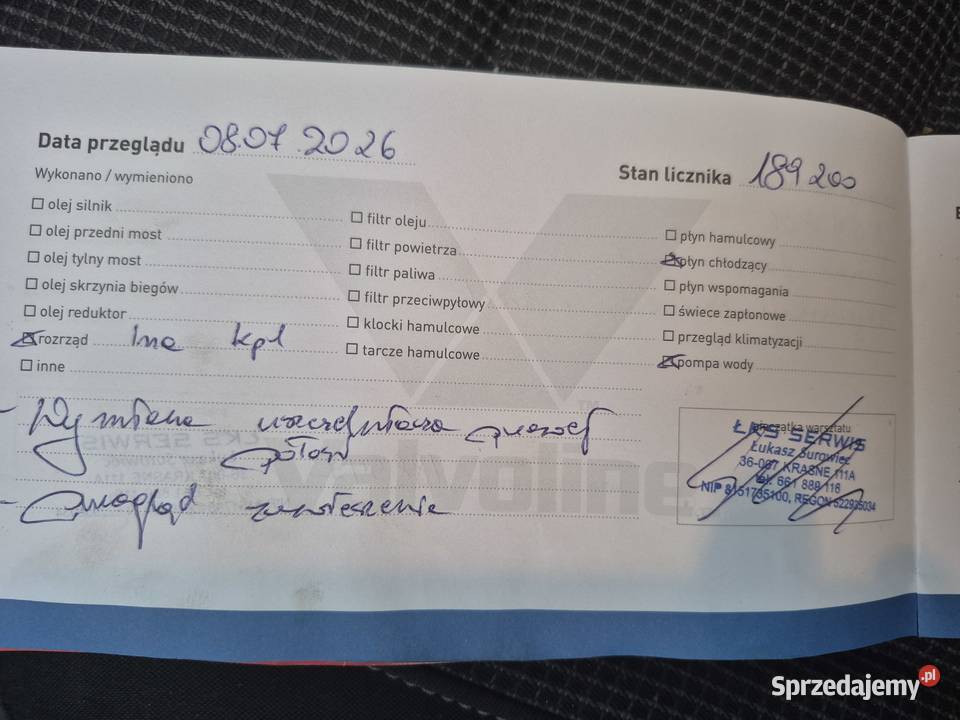 Data przeglądu 08.07.2026
Stan licznika 189 200
Wykonano / wymieniono
olej silnik
olej przedni most
olej tylny most
olej skrzynia biegów
olej reduktor
rozrząd Ina kpl
inne
filtr oleju
filtr powietrza
filtr paliwa
filtr przeciwpyłowy
klocki hamulcowe
tarcze hamulcowe
płyn hamulcowy
płyn chłodzący
płyn wspomagania
świece zapłonowe
przegląd klimatyzacji
pompa wody
- Wymiana uszczelniacza prawej
półosi
- przegląd zawieszenia
pieczątka warsztatu
ŁKS SERWIS
Łukasz Surowiec
36-007 KRASNE 111A
tel. 661 888 116
NIP 8151735100, REGON 522935034
Sprzedajemy.pl